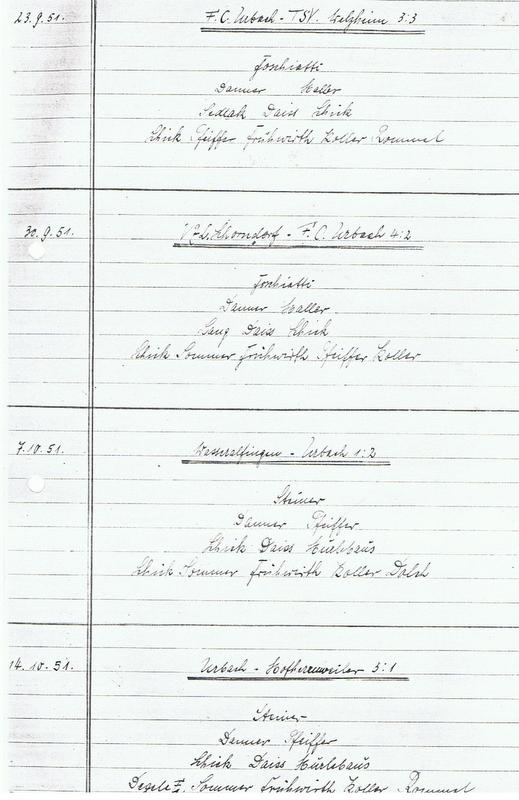 23.9.51. F.C. Urbach - TSV. Welzheim 3:3
Foschiatti
Danner Haller
Sedlak Daiss Schick
Schick Pfeiffer Frühwirth Koller Rommel
30.9.51. Schorndorf - F.C. Urbach 4:2
Foschiatti
Danner Haller
Lang Daiss Schick
Schick Sommer Frühwirth Pfeiffer Koller
7.10.51. Wasseralfingen - Urbach 1:2
Steiner
Danner Pfeiffer
Schick Daiss Hurlebaus
Schick Sommer Frühwirth Koller Dolch
14.10.51. Urbach - Hofherrnweiler 5:1
Steiner
Danner Pfeiffer
Schick Daiss Hurlebaus
Degele I. Sommer Frühwirth Koller Rommel